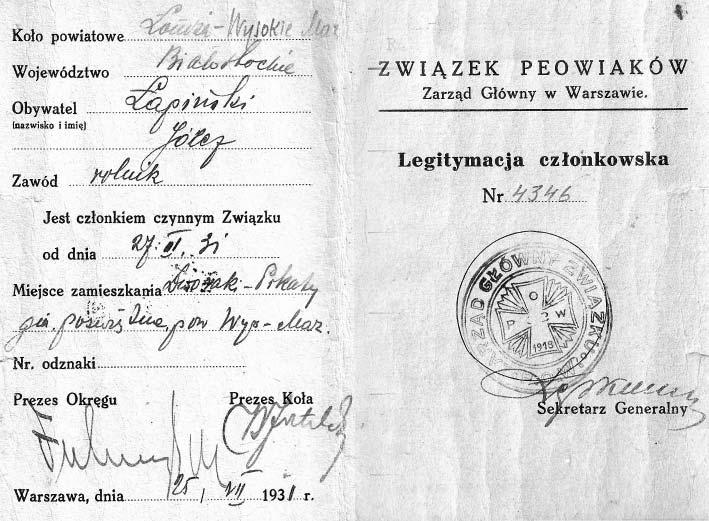 Koło powiatowe Łomża-Wysokie Maz
Województwo Białostockie
Obywatel Łapiński
(nazwisko i imię)
Józef
Zawód rolnik
Jest członkiem czynnym Związku
od dnia 27 31
Miejsce zamieszkania Pękaty
gm. poświętne, pow Wys-Maz.
Nr. odznaki
Prezes Okręgu Prezes Koła
Warszawa, dnia 25/VII 1931 r.
ZWIĄZEK PEOWIAKÓW
Zarząd Główny w Warszawie.
Legitymacja członkowska
Nr 4346
ZARZĄD GŁÓWNY ZWIĄZKU
P O W
1918
Sekretarz Generalny